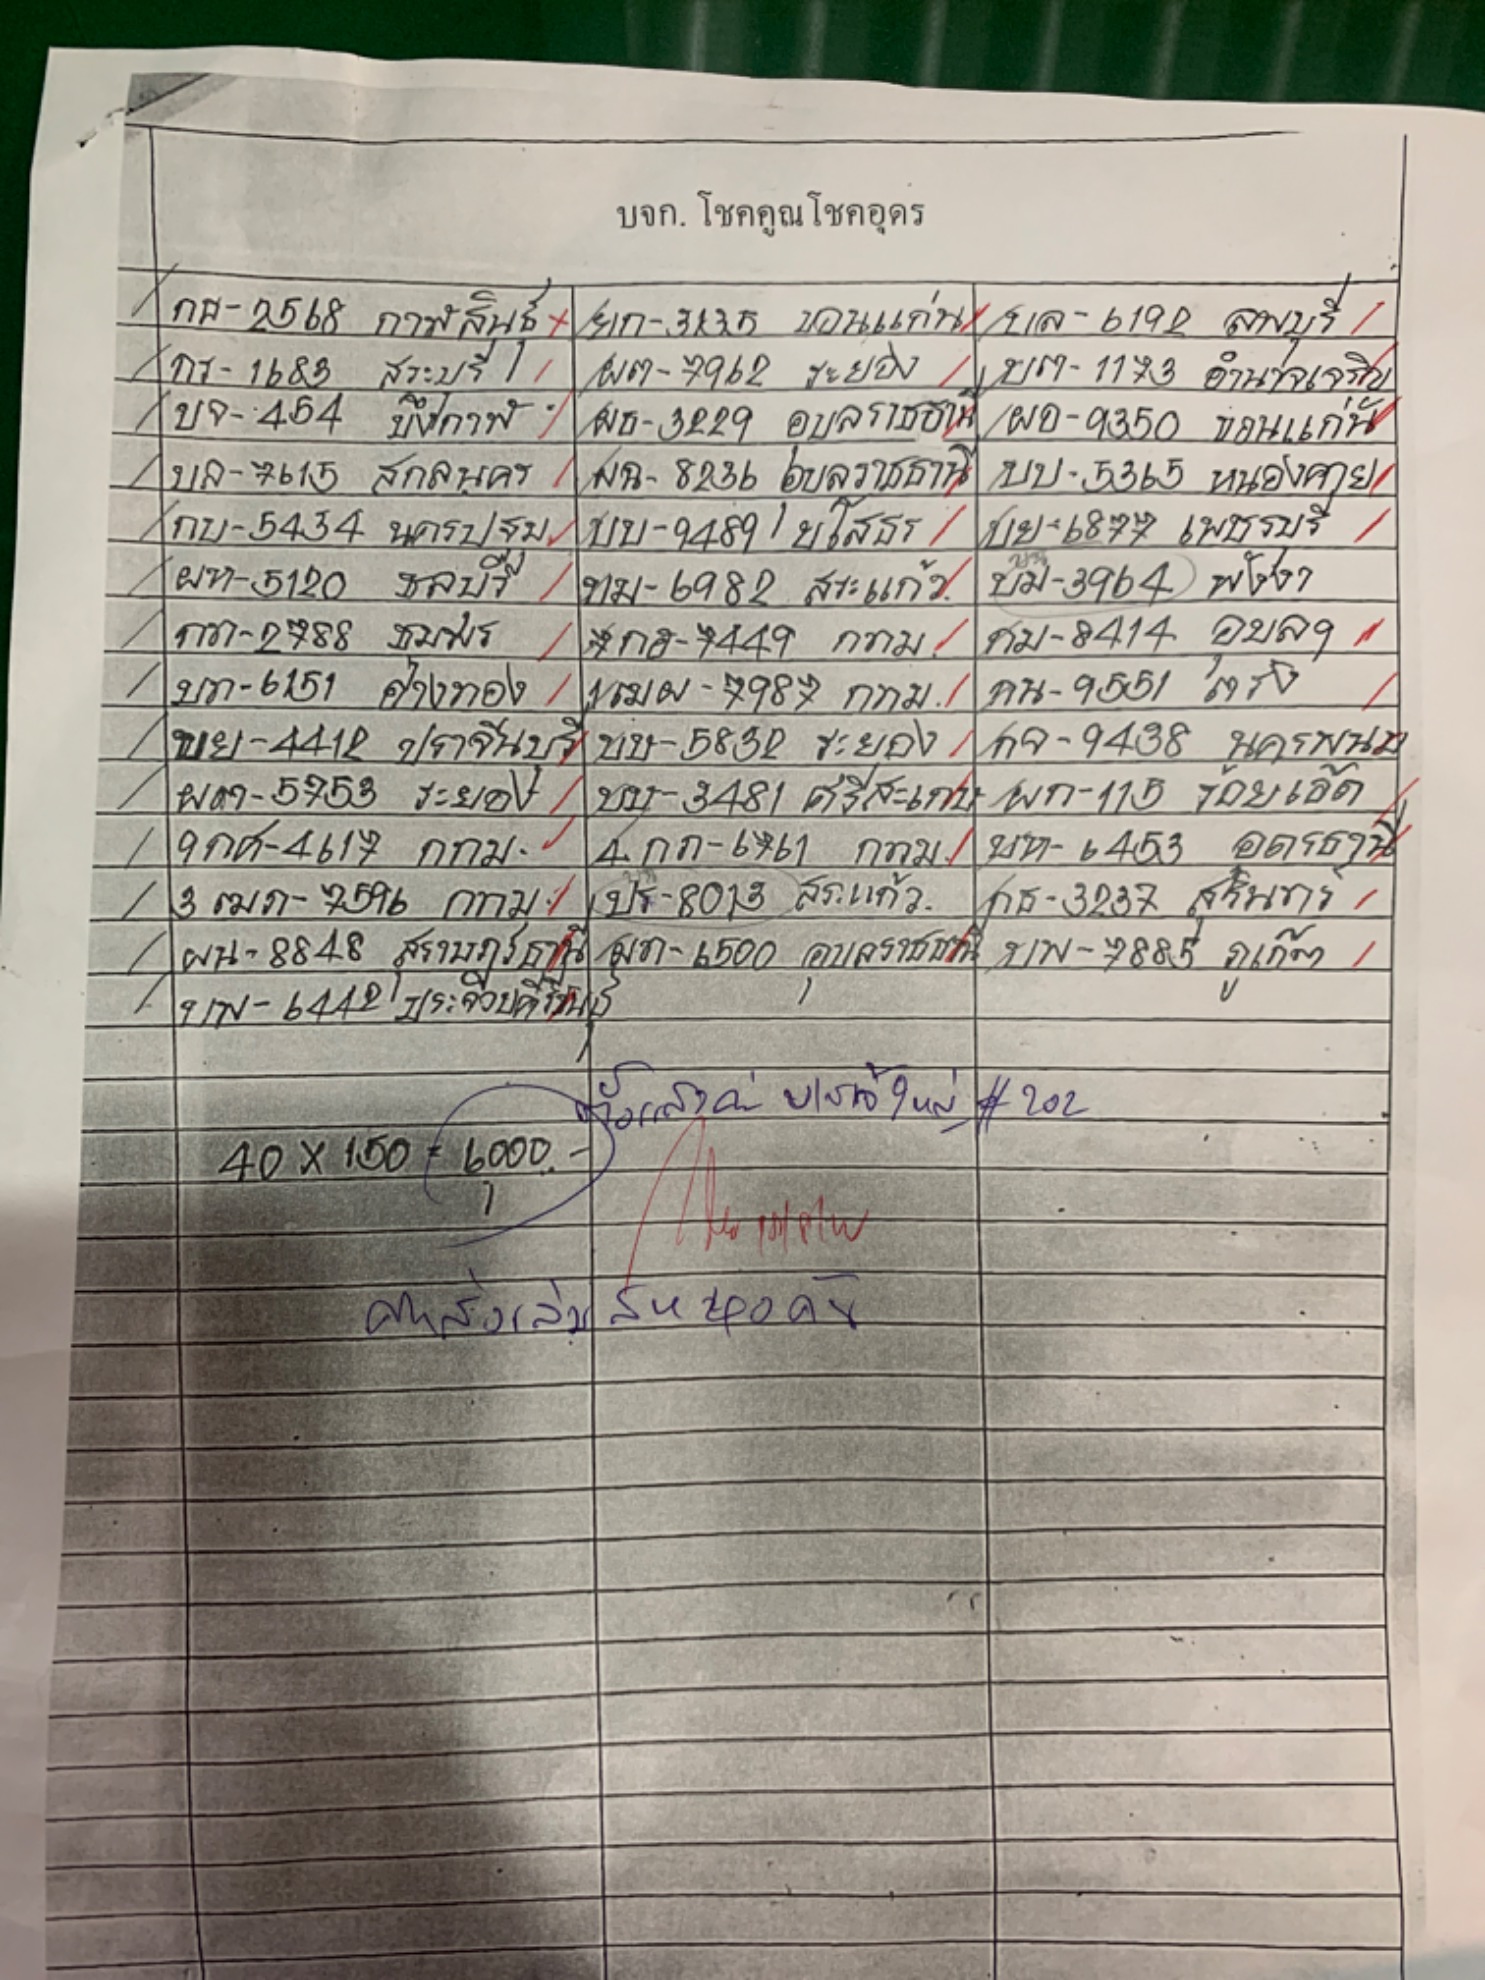 บจก. โชคคูณโชคอุดร
กส-2568 กาฬสินธุ์ ยก-3235 ขอนแก่น บล-6192 ลพบุรี
กร-1683 สระบุรี ผต-7962 ระยอง บต-1173 อำนาจเจริญ
บจ-454 บึงกาฬ ผธ-3229 อุบลราชธานี ผอ-9350 ขอนแก่น
บล-7615 สกลนคร ผฉ-8236 อุบลราชธานี บบ-5365 หนองคาย
กบ-5434 นครปฐม บบ-9489 ยโสธร บย-6877 เพชรบุรี
ผท-5120 ชลบุรี ทม-6982 สระแก้ว บม-3964 พังงา
กท-2788 ชุมพร 7กอ-7449 กทม. กม-8414 อุบลฯ
บก-6151 อ่างทอง 1ฒผ-7987 กทม. กน-9551 ตรัง
ขย-4412 ปราจีนบุรี ขษ-5832 ระยอง กจ-9438 นครพนม
ผต-5753 ระยอง บบ-3481 ศรีสะเกษ ผก-115 ร้อยเอ็ด
9กศ-4617 กทม. 4กภ-6761 กทม. บท-6453 อุดรธานี
3ฒภ-7596 กทม. ปร-8013 สระแก้ว. กธ-3237 สุรินทร์
ผน-8848 สุราษฎร์ธานี ผท-6500 อุบลราชธานี บพ-7885 ภูเก็ต
บพ-6442 ประจวบคีรีขันธ์
#202
40 X 150 = 6000.-